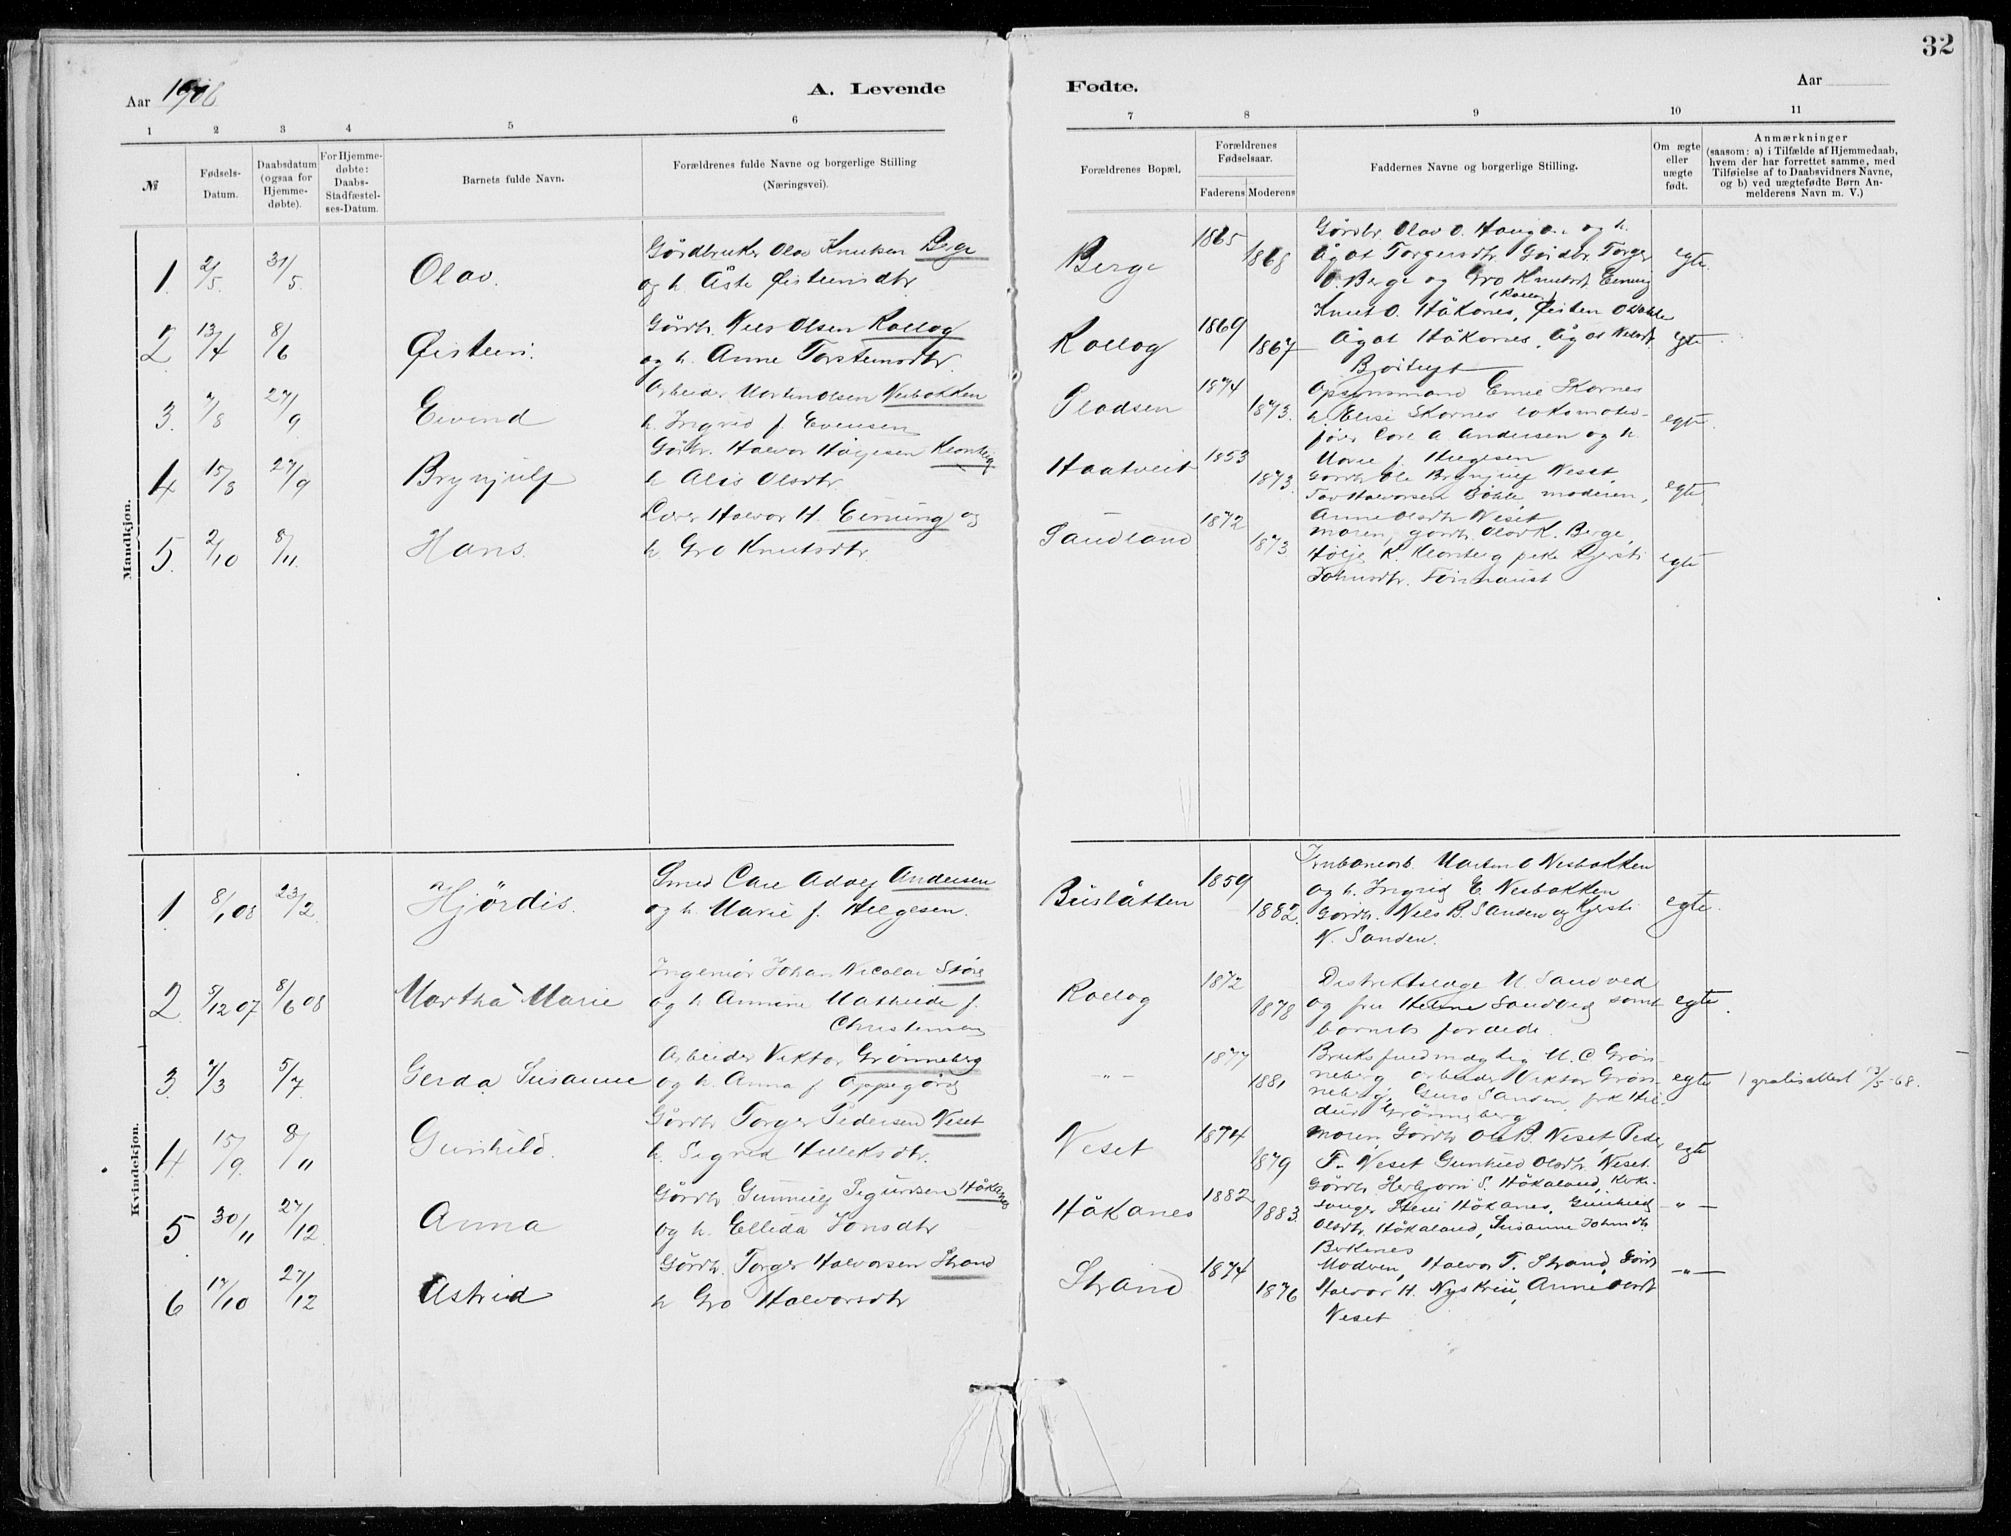 32
Aar 1908
A. Levende
Fødte.
Aar
1 2 3 4 5 6 7 8 9 10 11
№
Fødsels-
Datum.
Daabsdatum
(ogsaa for
Hjemme-
døbte).
For Hjemme-
døbte:
Daabs-
Stadfæstel-
ses-Datum.
Barnets fulde Navn.
Forældrenes fulde Navne og borgerlige Stilling
(Næringsvei).
Forældrenes Bopæl.
Forældrenes
Fødselsaar.
Faderens Moderens
Faddernes Navne og borgerlige Stilling.
Om ægte
eller
uægte
født.
Anmærkninger
(saasom: a) i Tilfælde af Hjemmedaab,
hvem der har forrettet samme, med
Tilføielse af to Daabsvidners Navne,
og b) ved uægtefødte Børn An-
melderens Navn m. V.)
Mandkjøn.
1. 2/5. 31/5. Olav.
Gårdbruker Olav Knutsen Berge
og h. Åste Øisteinsdtr.
Berge 1865 1868
Gårdbr Olav O. Haugen og h.
Ågot Torgersdtr Gårdbr. Torger
O. Berge og Gro Knutsdt Eining
egte.
2 13/4 8/6 Øistein.
Gårdb. Nils Olsen Kollog
og h. Anne Torsteinsdtr.
Kollog 1869 1867
Knut O. Håkanes, Øisten O
Ågot Håkanes, Ågot Nilsdt.
egte
3. 7/8 27/9 Eivind
Arbeider Martin Olsen Nesbakken
h. Ingrid f. Evensen
Pladsen 1874 1873.
Opsynsmand Skarnes
h. Elise Skarnes lokomotiv-
fører Carl A. Andersen og h.
Marie f. Helgesen
egte.
4 15/8 27/9 Brynjulf
Gårbr. Halvor Høljesen Kleonteig
h Alis Olsdtr.
Haatveit 1853 1873.
Gårdb Ole Brynjulf Neset,
Tov Halvorsen Bøhle, moderen,
Anne Olsdtr Neset
egte
5. 2/10 8/11. Hans.
Lærer Halvor H. Eining og
h. Gro Knutsdtr.
Saudland 1872 1873
moren, gårdb. Olav K. Berge,
Hølje K. pike Kjersti
Johnsdtr.
egte
Kvindekjøn.
1. 8/1 08 23/2. Hjørdis.
Smed Carl Adolf Andersen
og h. Marie f. Helgesen.
Büslåtten 1859 1882.
Jrnbanearb. Martin O Nesbakken
og h. Ingrid E. Nesbakken
Gårdb. Nils B. Sanden og Kjersti
N. Sanden.
egte.
2. 5/12 07 8/6 08 Martha Marie
Ingeniør Johan Nicolai Støre
og h. Annine Mathilde f.
Christensen
Kollog 1872 1878
Distriktslæge M Sandved
og fru Helene Sandved samt
barnets forældr.
egte.
3. 7/3 5/7. Gerda Susanne
Arbeider Viktor Grønneberg
og h. Anna f Oppegård
— „ — 1877 1881
Bruksfuldmægtig M. C Grøn-
neberg arbeider Viktor Grøn-
neberg, Guro Sanden, frk Hil-
dur Grønneberg
egte
gratisattest 13/5-68.
4. 15/9. 8/11 Gunhild.
Gårdb Torger Pedersen Neset
h. Sigrid Hulleksdtr.
Neset 1874 1879
moren, Gårdb Ole B. Neset, Peder
T. Neset Gunhild Olsdtr. Neset.
egte
5. 30/11 27/12. Anna
Gårdb Gunnulf Sigurdsen Håkanes
og h. Ellida Jonsdtr
Håkanes 1882 1883.
Gårdb. Herbjørn S. Håkaland, kirke-
sanger Stein Håkanes, Gunhild
Olsdtr. Håkaland, Susanne Johnsdtr.
Bokenes
— „ —
6 17/10 27/12 Astrid
Gårdb. Torger Halvorsen Strand
h Gro Halvorsdtr
Strand 1874 1876
Modren, Halvor T. Strand, Gårdb
Halvor H. Anne Olsdt
Neset
— „ —